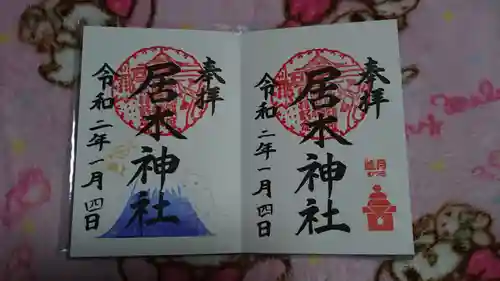 奉拝
居木神社
令和二年一月四日
奉拝
居木神社
令和二年一月四日
睦月